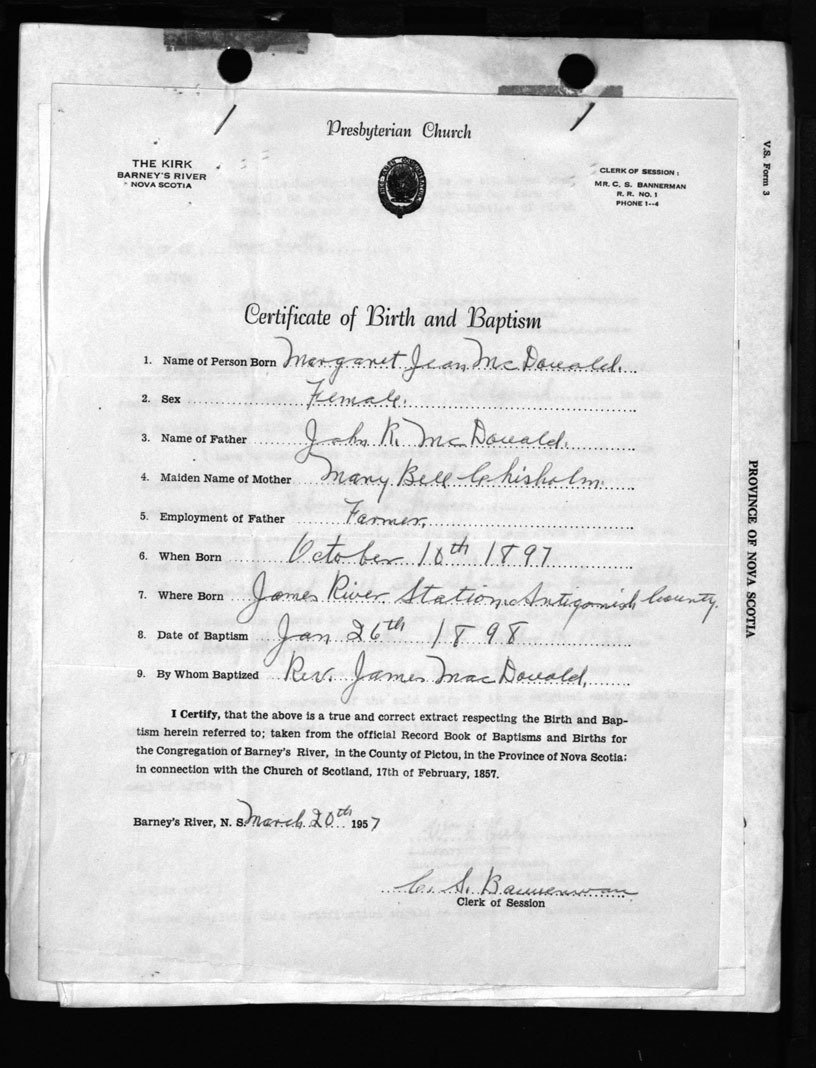 Presbyterian Church
THE KIRK
BARNEY'S RIVER
NOVA SCOTIA
CLERK OF SESSION:
MR. C. S. BANNERMAN
R. R. NO. 1
PHONE 1--4
V.S. Form 3
Certificate of Birth and Baptism
1. Name of Person Born Margaret Jean McDonald.
2. Sex Female.
3. Name of Father John R. McDonald.
4. Maiden Name of Mother Mary Bell Chisholm.
5. Employment of Father Farmer.
6. When Born October 10th 1897
7. Where Born James River Station Antigonish County.
8. Date of Baptism Jan 26th 1898
9. By Whom Baptized Rev. James MacDonald.
I Certify, that the above is a true and correct extract respecting the Birth and Bap-
tism herein referred to; taken from the official Record Book of Baptisms and Births for
the Congregation of Barney's River, in the County of Pictou, in the Province of Nova Scotia:
in connection with the Church of Scotland, 17th of February, 1857.
Barney's River, N. S. March 20th 1957
C. S. Bannerman
Clerk of Session
PROVINCE OF NOVA SCOTIA